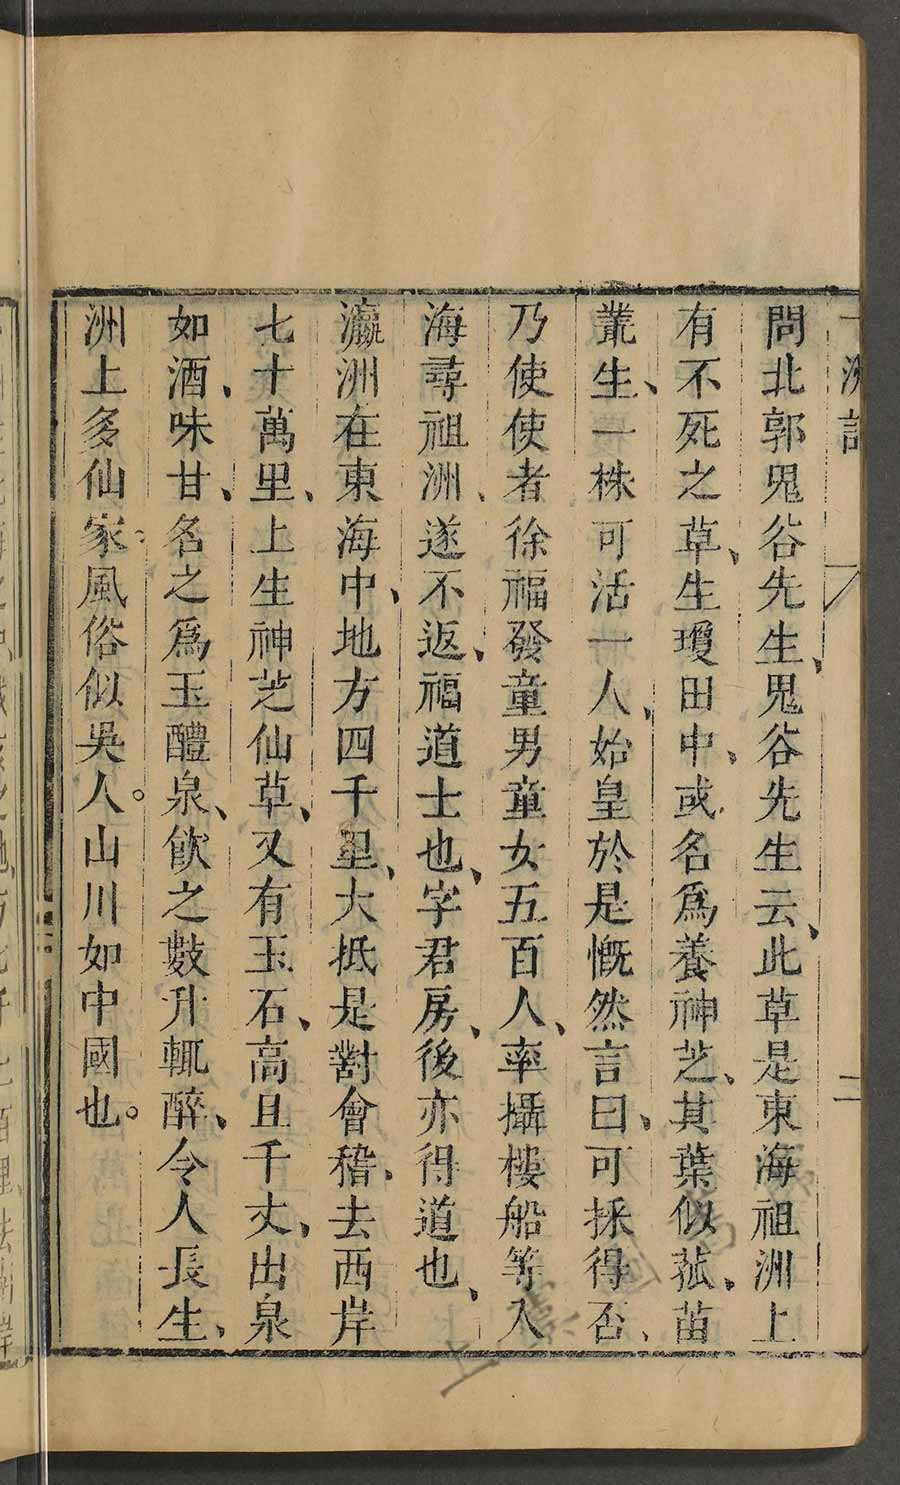 問北郭鬼谷先生、鬼谷先生云、此草是東海祖洲上
有不死之草、生瓊田中、或名爲養神芝、其葉似菰、苗
叢生、一株可活一人、始皇於是慨然言曰、可採得否、
乃使使者徐福發童男童女五百人、率攝樓船等入
海尋祖洲、遂不返、福道士也、字君房、後亦得道也、
瀛洲在東海中、地方四千里、大抵是對會稽、去西岸
七十萬里、上生神芝仙草、又有玉石、高且千丈、出泉
如酒、味甘、名之爲玉醴泉、飲之數升輒醉、令人長生、
洲上多仙家。風俗似吳人。山川如中國也。